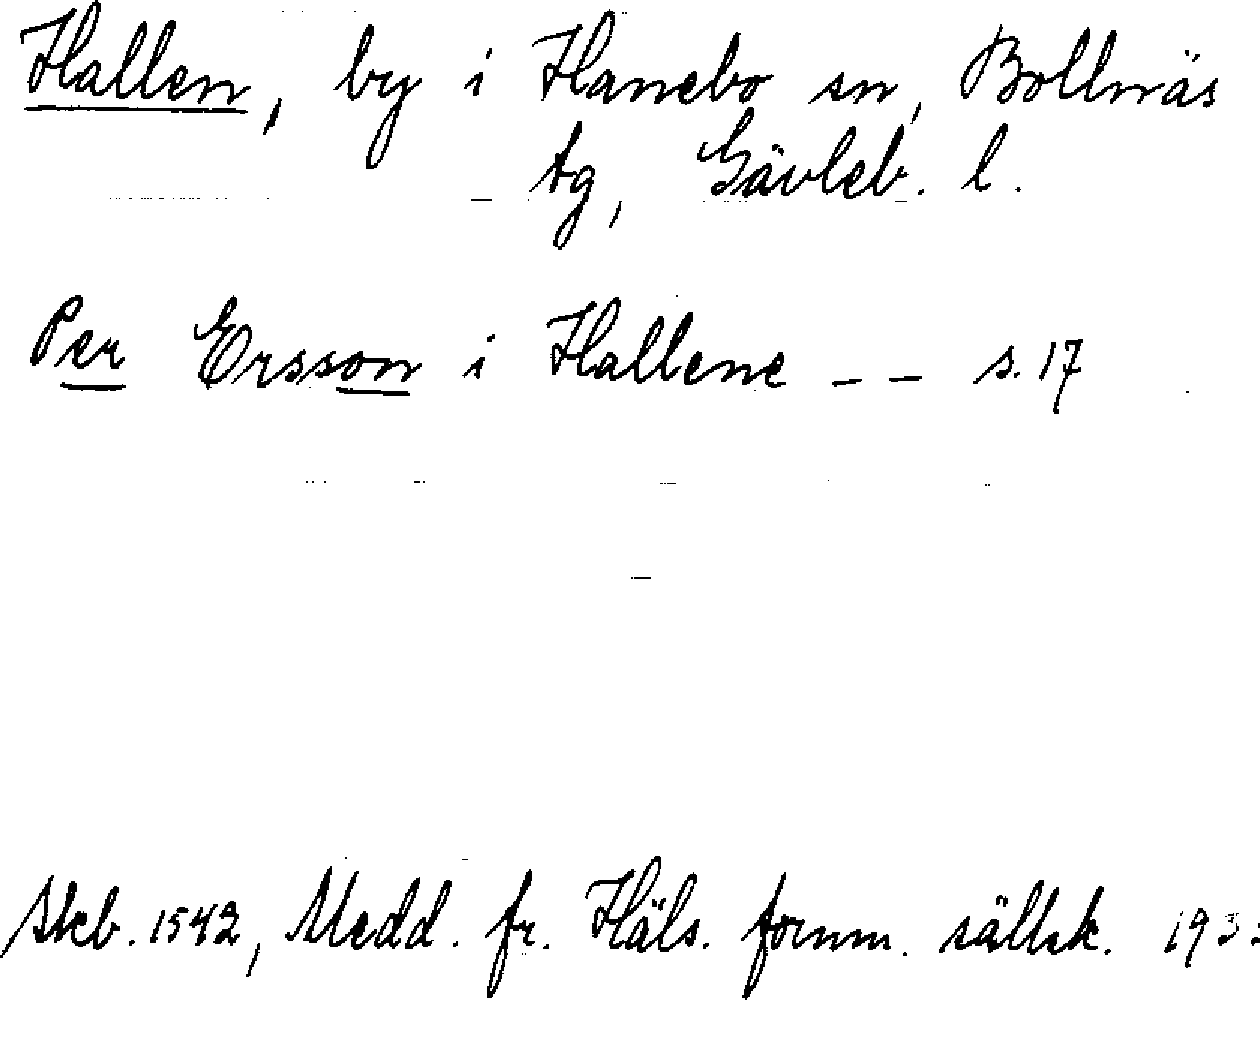 Hallen, by i Hanebo sn, Bollnäs
tg, Gävleb. l.
Per Ersson i Hallene - - s. 17
Skb. 1542, Medd. fr. Häls. fornm. sällsk. 1933